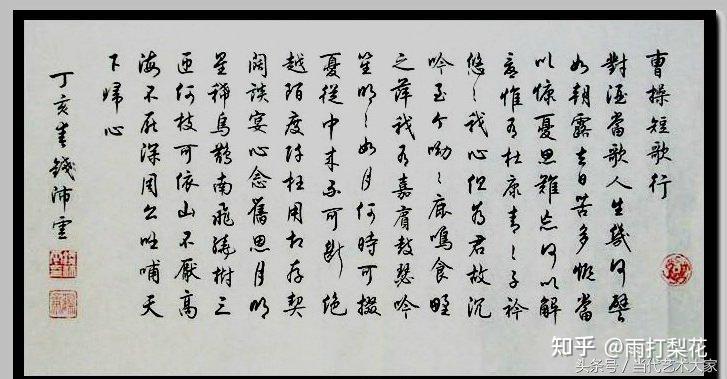 曹操短歌行
對酒當歌人生幾何譬
如朝露去日苦多慨當
以慷憂思難忘何以解
憂惟有杜康青々子衿
悠々我心但為君故沉
吟至今呦々鹿鳴食野
之萍我有嘉賓鼓瑟吹
笙明々如月何時可掇
憂從中來不可斷絕
越陌度阡枉用相存契
闊談宴心念舊恩月明
星稀烏鵲南飛繞樹三
匝何枝可依山不厭高
海不厭深周公吐哺天
下歸心
丁亥春錢沛雲
知乎 @雨打梨花
头条号 / 当代艺术大家